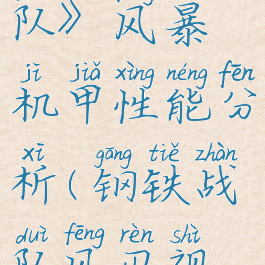 队》风暴
jī jiǎ xìng néng fēn
机甲性能分
xī gāng tiě zhàn
析(钢铁战
duì fēng rèn shì
队风刃视